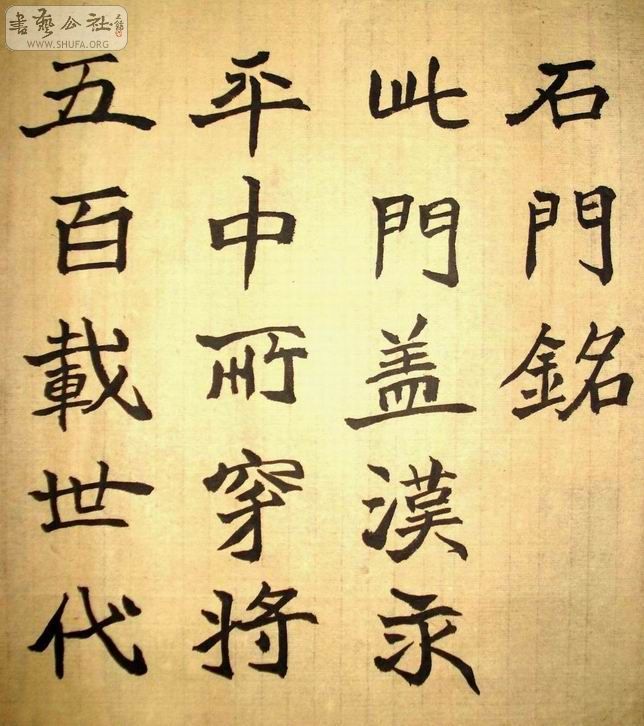 書藝公社
WWW.SHUFA.ORG
石門銘
此門盖漢永
平中所穿將
五百載世代